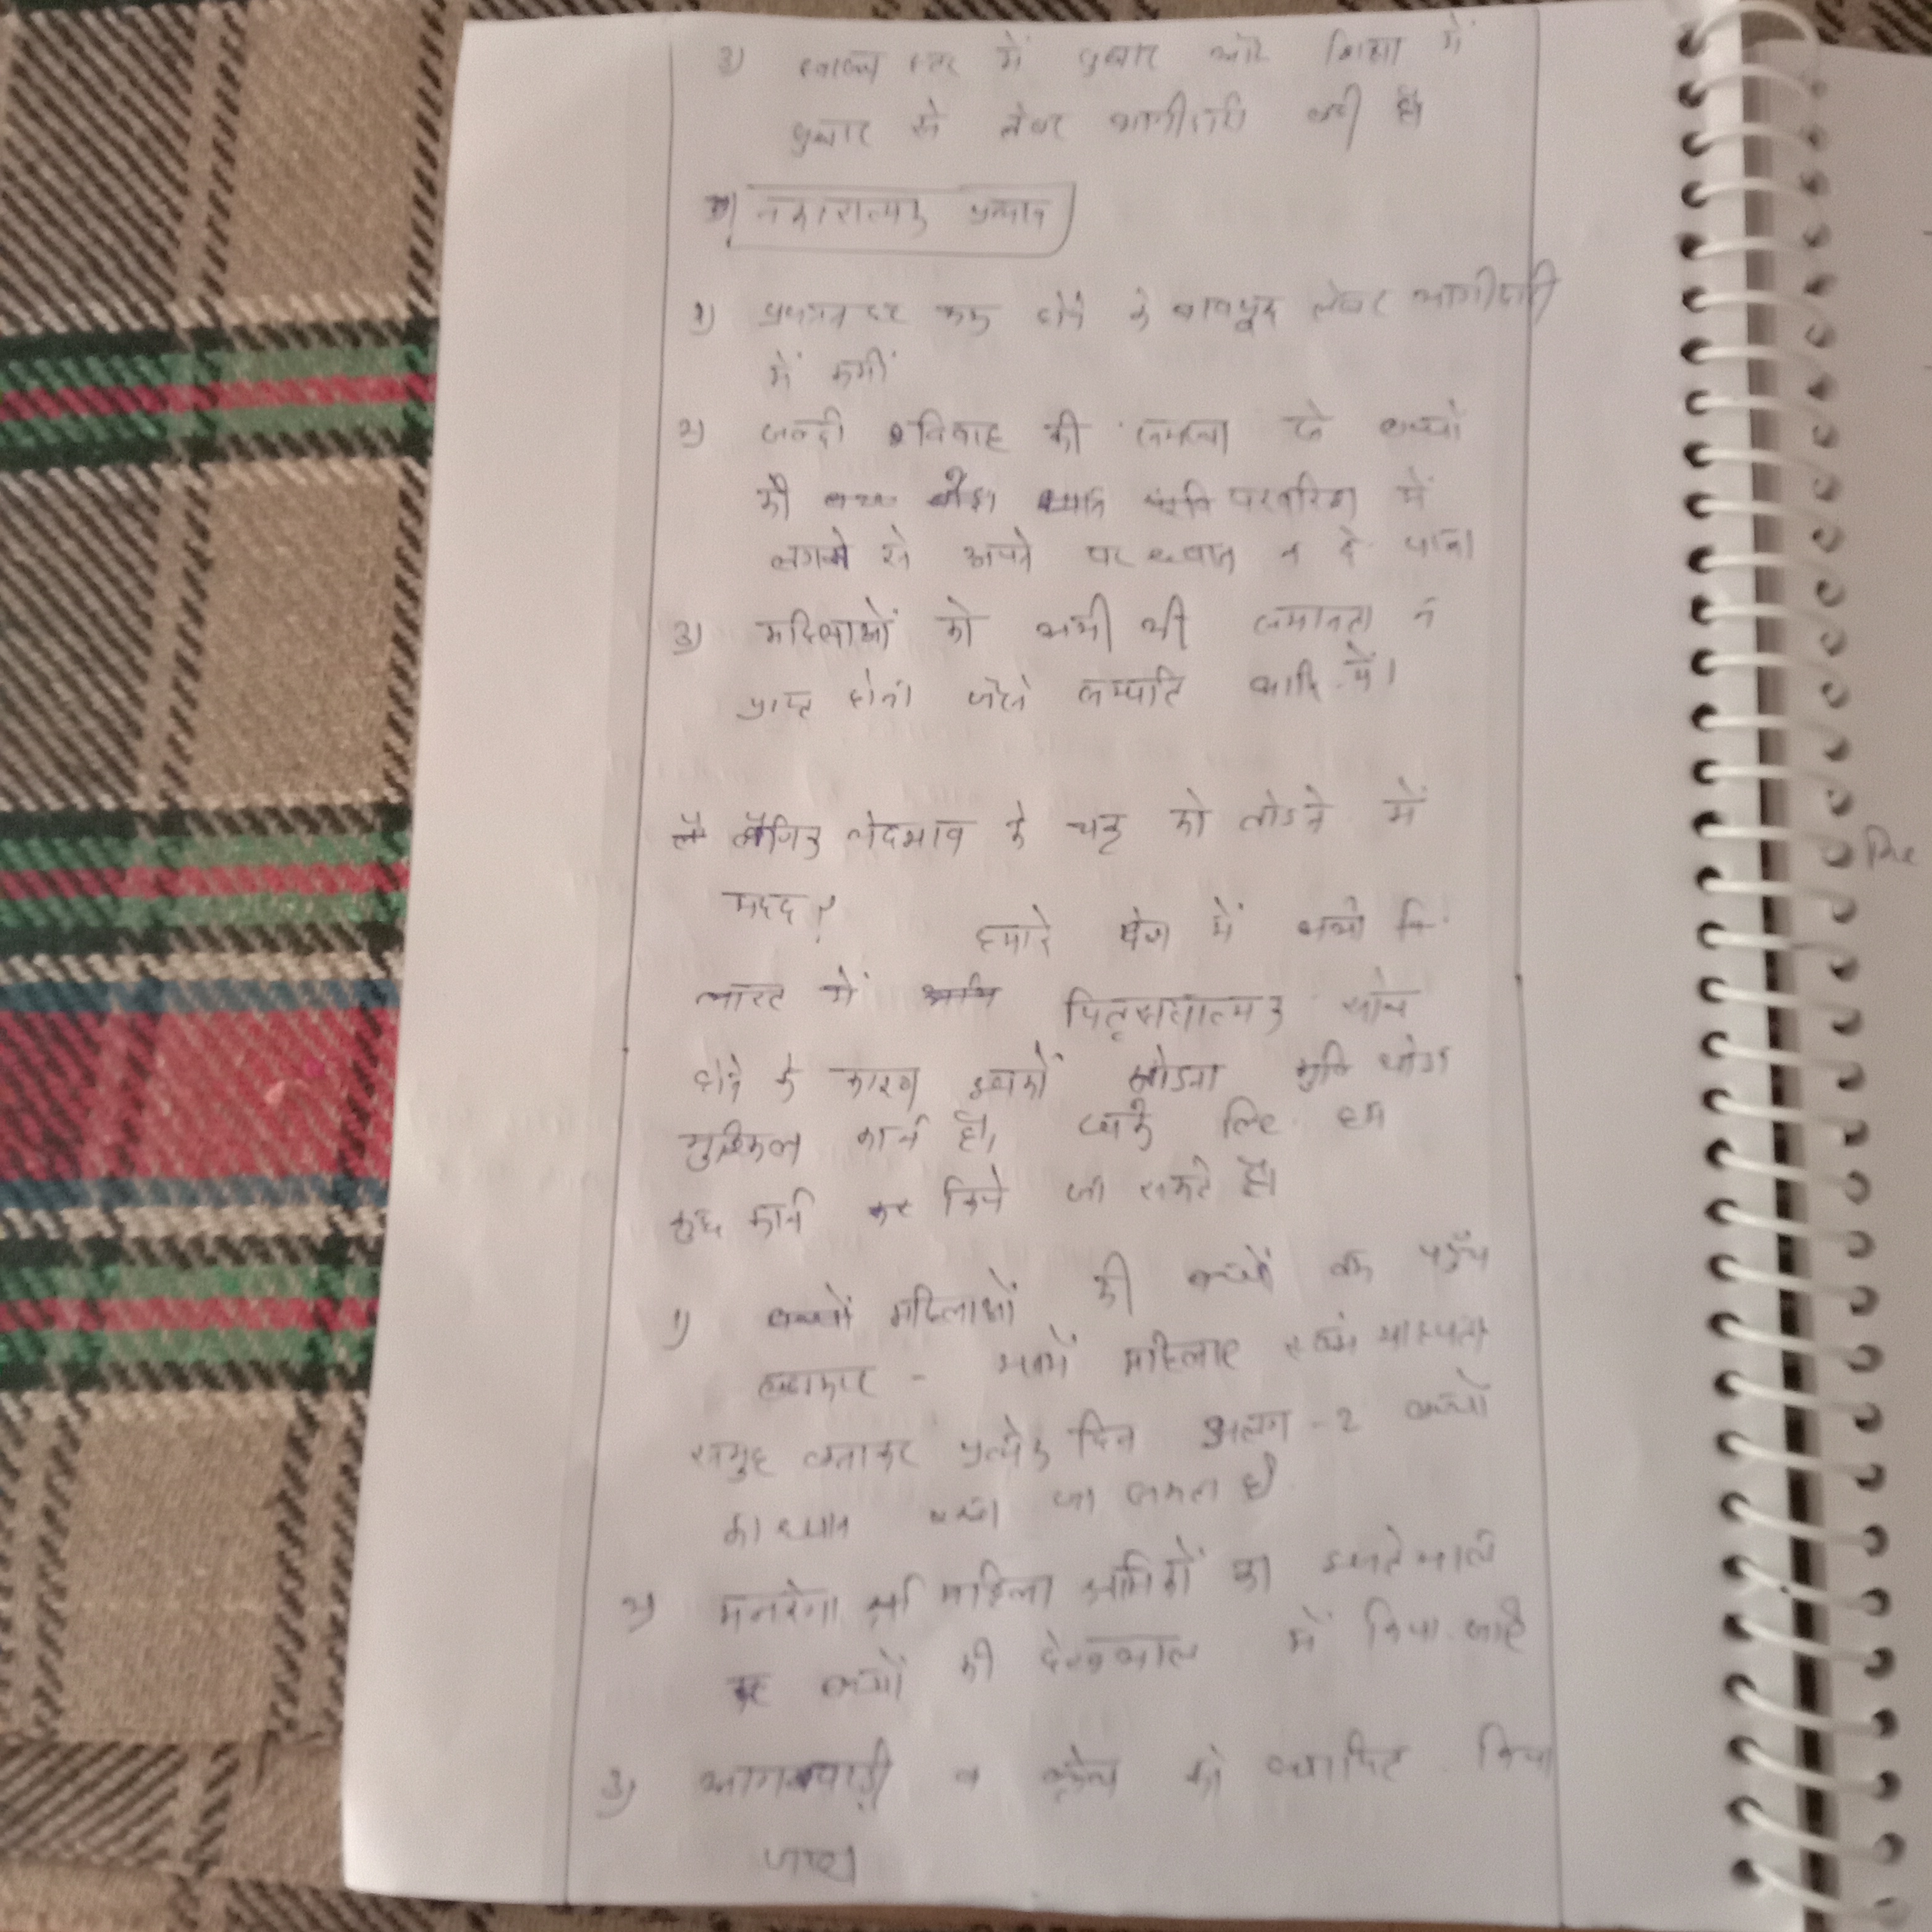 3) स्वास्थ्य स्तर में सुधार और शिक्षा में
सुधार से लेबर भागीदारी बढ़ी है।
नकारात्मक प्रभाव
1) प्रजनन दर कम होने के बावजूद लेबर भागीदारी
में कमी
2) जल्दी विवाह की समस्या से बच्चों
की परवरिश में
लगने से अपने पर ध्यान न दे पाना
3) महिलाओं को अभी भी समानता न
प्राप्त होना जैसे सम्पत्ति आदि में।
लैंगिक भेदभाव के चक्र को तोड़ने में
मदद?
हमारे देश में
भारत में पितृसत्तात्मक सोच
होने के कारण इसको तोड़ना थोड़ा
मुश्किल कार्य है, इसके लिए हम
कुछ कार्य किये जा सकते हैं।
1) महिलाओं की बच्चों तक पहुँच
हटाकर - महिलाएं
समूह बनाकर प्रत्येक दिन अलग-2 बच्चों
का ध्यान रखा जा सकता है।
2) मनरेगा महिला श्रमिकों का इस्तेमाल
बच्चों की देखभाल में किया जाए
3) आंगनवाड़ी व क्रेच को स्थापित किया
जाए।